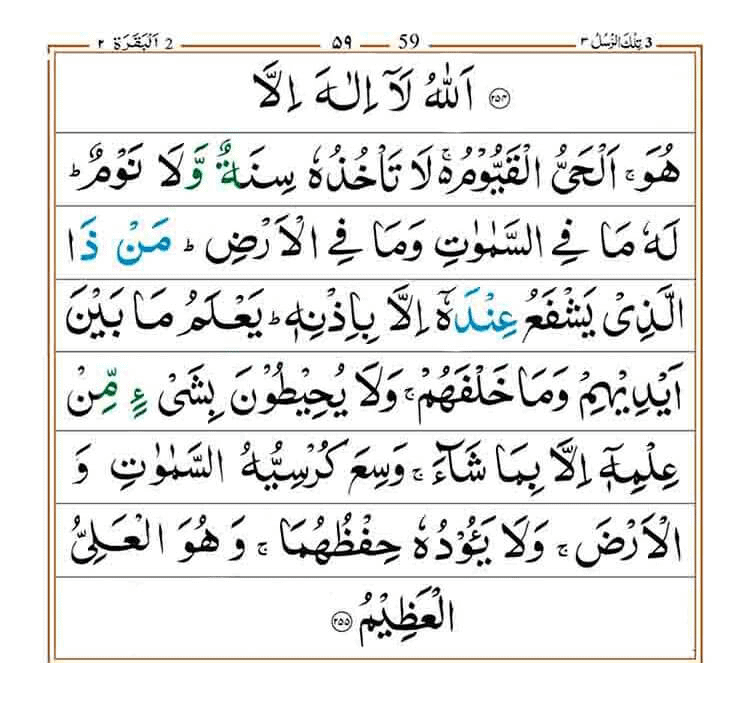 3 تِلْكَ الرُّسُلُ ٣ 59 ٥٩ 2 اَلْبَقَرَة ٢
﴿٢٥٤﴾ اَللّٰهُ لَاۤ اِلٰهَ اِلَّا
هُوَ ۚ اَلْحَیُّ الْقَیُّوْمُ ۚ۬ لَا تَاْخُذُهٗ سِنَةٌ وَّ لَا نَوْمٌ ؕ
لَهٗ مَا فِی السَّمٰوٰتِ وَمَا فِی الْاَرْضِ ؕ مَنْ ذَا
الَّذِیْ یَشْفَعُ عِنْدَهٗۤ اِلَّا بِاِذْنِهٖ ؕ یَعْلَمُ مَا بَیْنَ
اَیْدِیْهِمْ وَمَا خَلْفَهُمْ ۚ وَلَا یُحِیْطُوْنَ بِشَیْءٍ مِّنْ
عِلْمِهٖۤ اِلَّا بِمَا شَآءَ ۚ وَسِعَ كُرْسِیُّهُ السَّمٰوٰتِ وَ
الْاَرْضَ ۚ وَلَا یَـُٔوْدُهٗ حِفْظُهُمَا ۚ وَ هُوَ الْعَلِیُّ
الْعَظِیْمُ ﴿٢٥٥﴾